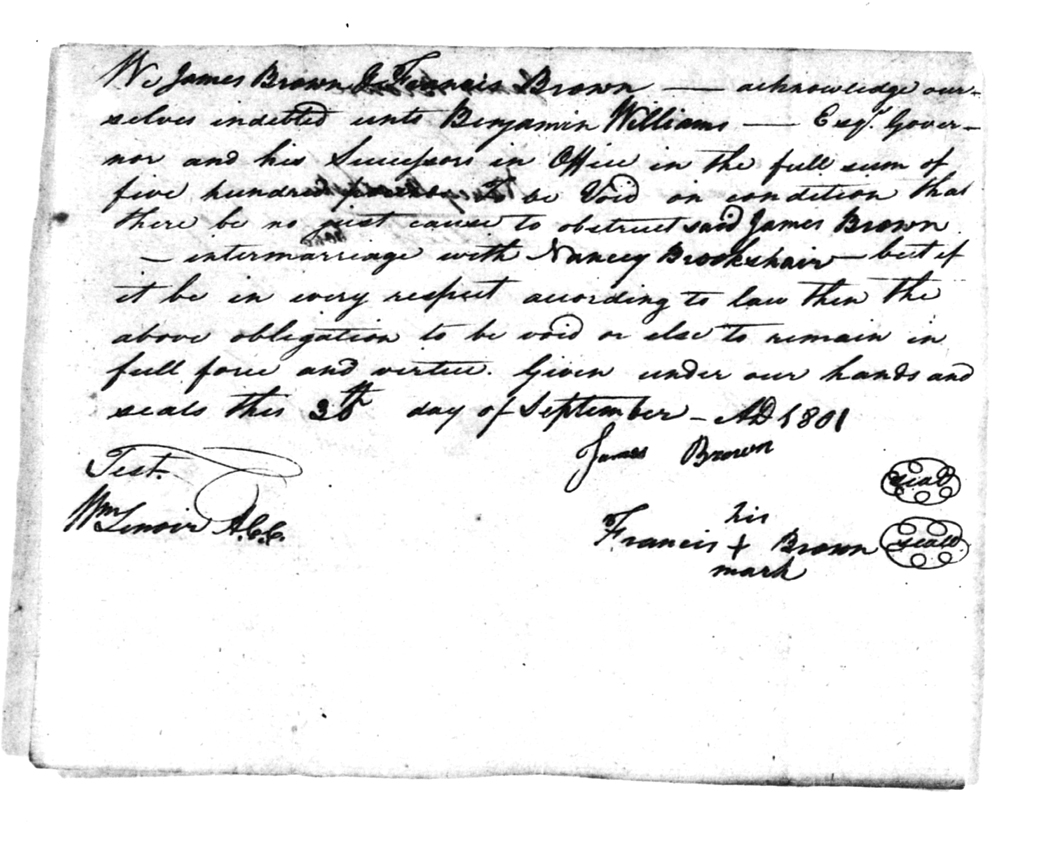 We James Brown & Francis Brown — acknowledge our-
selves indebted unto Benjamin Williams — Esqr. Gover-
nor and his Successors in Office in the full sum of
five hundred pounds to be Void on condition that
there be no just cause to obstruct said James Brown
— intermarriage with Nancey Brookshair — but if
it be in every respect according to law then the
above obligation to be void or else to remain in
full force and virtue. Given under our hands and
seals this day of September - AD 1801
James Brown seal
Test.
Wm Lenoir A.C.C.
his
Francis + Brown seal
mark